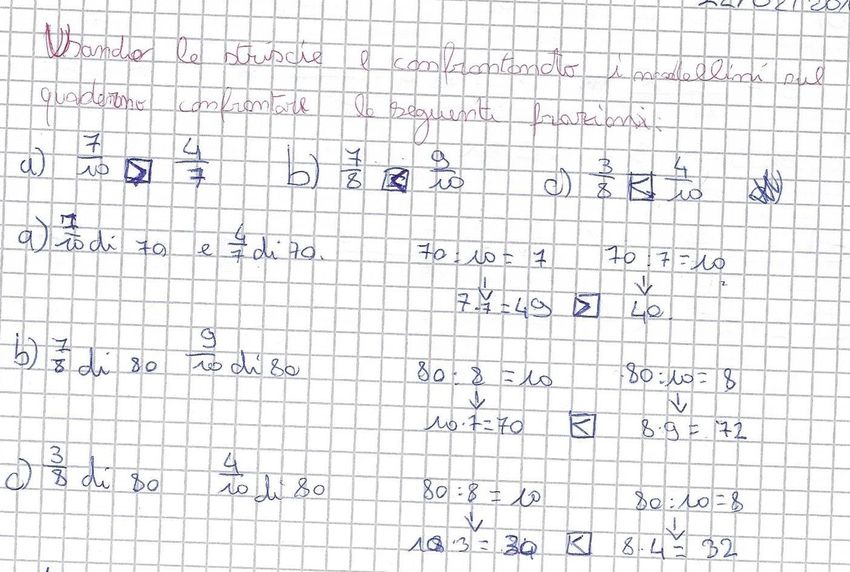 22/02/201
Usando le striscie e confrontando i modellini sul
quaderno confrontare le seguenti frazioni:
a) 7/10 > 4/7 b) 7/8 < 9/10 c) 3/8 < 4/10
a) 7/10 di 70 e 4/7 di 70. 70 : 10 = 7 70 : 7 = 10
↓ ↓
7·7 = 49 > 40.
b) 7/8 di 80 9/10 di 80 80 : 8 = 10 80 : 10 = 8
↓ ↓
10·7 = 70 < 8·9 = 72
c) 3/8 di 80 4/10 di 80 80 : 8 = 10 80 : 10 = 8
↓ ↓
10·3 = 30 < 8·4 = 32